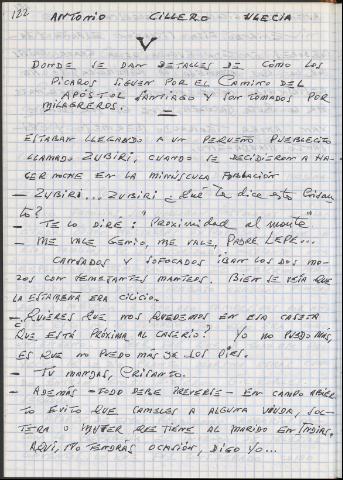 122
ANTONIO CILLERO ULECIA
V
DONDE SE DAN DETALLES DE CÓMO LOS
PÍCAROS SIGUEN POR EL CAMINO DEL
APÓSTOL SANTIAGO Y SON TOMADOS POR
MILAGREROS.
ESTABAN LLEGANDO A UN PEQUEÑO PUEBLECITO
LLAMADO ZUBIRI, CUANDO SE DECIDIERON A HA-
CER NOCHE EN LA MINÚSCULA POBLACIÓN
- ZUBIRI... ZUBIRI ¿Qué te dice esto Crisan-
to?
- TE LO DIRÉ: "Proximidad al monte"
- ME VALE GENIO, ME VALE, PADRE LEPE...
CANSADOS Y SOFOCADOS IBAN LOS DOS MO-
ZOS CON SEMEJANTES MANTEOS. BIEN SE VEÍA QUE
LA ESTAMEÑA ERA CILICIO.
- ¿QUIERES QUE NOS QUEDEMOS EN ESA CASETA
QUE ESTÁ PRÓXIMA AL CASERÍO? YO NO PUEDO MÁS,
ES QUE NO PUEDO MÁS DE LOS PIES.
- TU MANDAS, CRISANTO.
- ADEMÁS - TODO DEBE PREVERSE - EN CAMPO ABIER-
TO EVITO QUE CAMELES A ALGUNA VIUDA, SOL-
TERA O MUJER QUE TIENE AL MARIDO EN INDIAS.
AQUÍ, NO TENDRÁS OCASIÓN, DIGO YO...